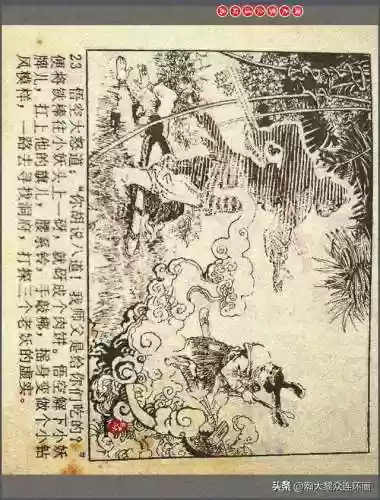 23 悟空大怒道：“你胡说八道！我师父是给你们吃的？”
便将铁棒往小妖头上一砑，就砑成个肉饼。悟空解下小妖
牌儿，扛上他的旗儿，腰系铃，手敲梆，摇身变做个小钻
风模样，一路去寻找洞府，打探三个老妖的虚实。
头条 @翰大黎众连环画